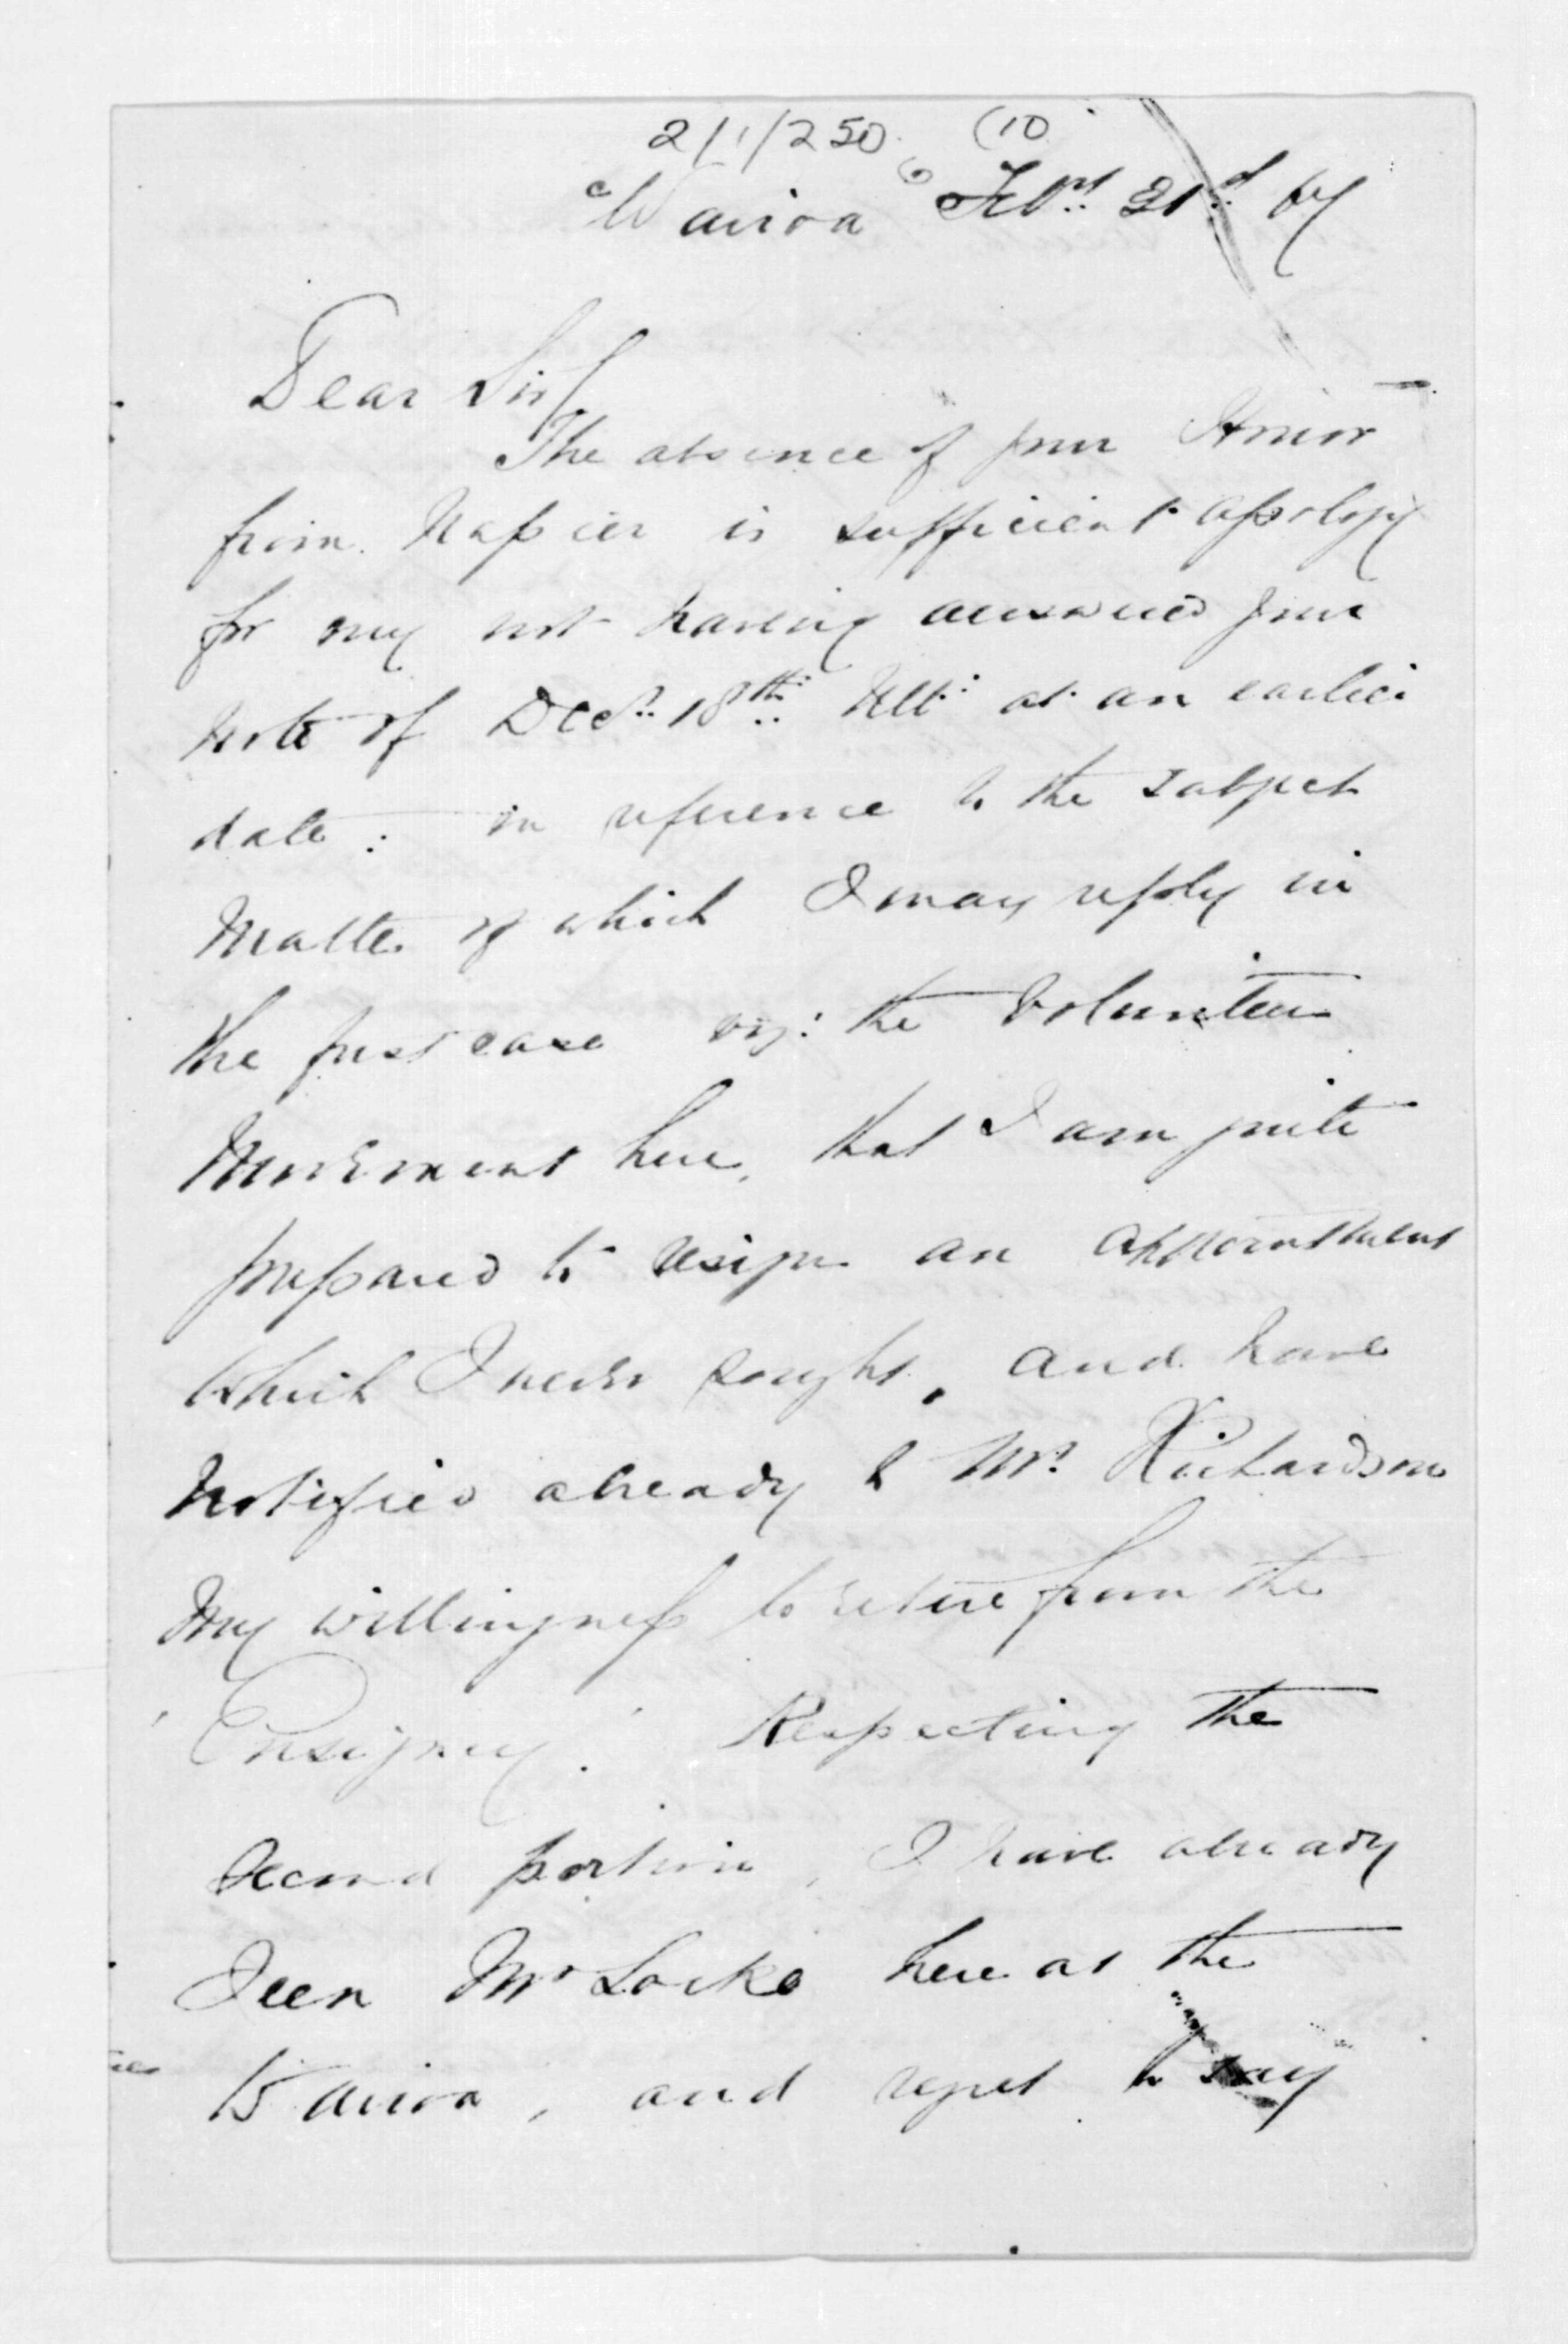 2/1/250. (10
Wairoa Feby. 21st.
Dear Sir/
The absence of your Honor
from Napier is sufficient apology
for my not having answered your
note of Decr. 18th. Ult: at an earlier
date: in reference to the subject
Matter of which I may reply in
the first case viz: the Volunteer
Movement here, that I am quite
prepared to resign an appointment
which I never sought, and have
Notified already to Mr. Richardson
My willingness to retire from the
'Ensigncy'. Respecting the
Second portion, I have already
Seen Mr Locke here at the
Wairoa, and regret to say